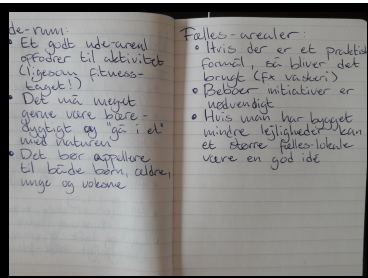 de-rum:
• Et godt ude-areal
opfodrer til aktivitet
(ligesom fitness-
taget!)
• Det må meget
gerne være bære-
dygtigt og "gå i et"
med naturen
• Det bør appellere
til både børn, ældre,
unge og voksne
Fælles-arealer:
• Hvis der er et praktisk
formål, så bliver det
brugt (fx vaskeri)
• Beboer initiativer er
nødvendigt
• Hvis man har bygget
mindre lejligheder kan
et større fælles-lokale
være en god idé